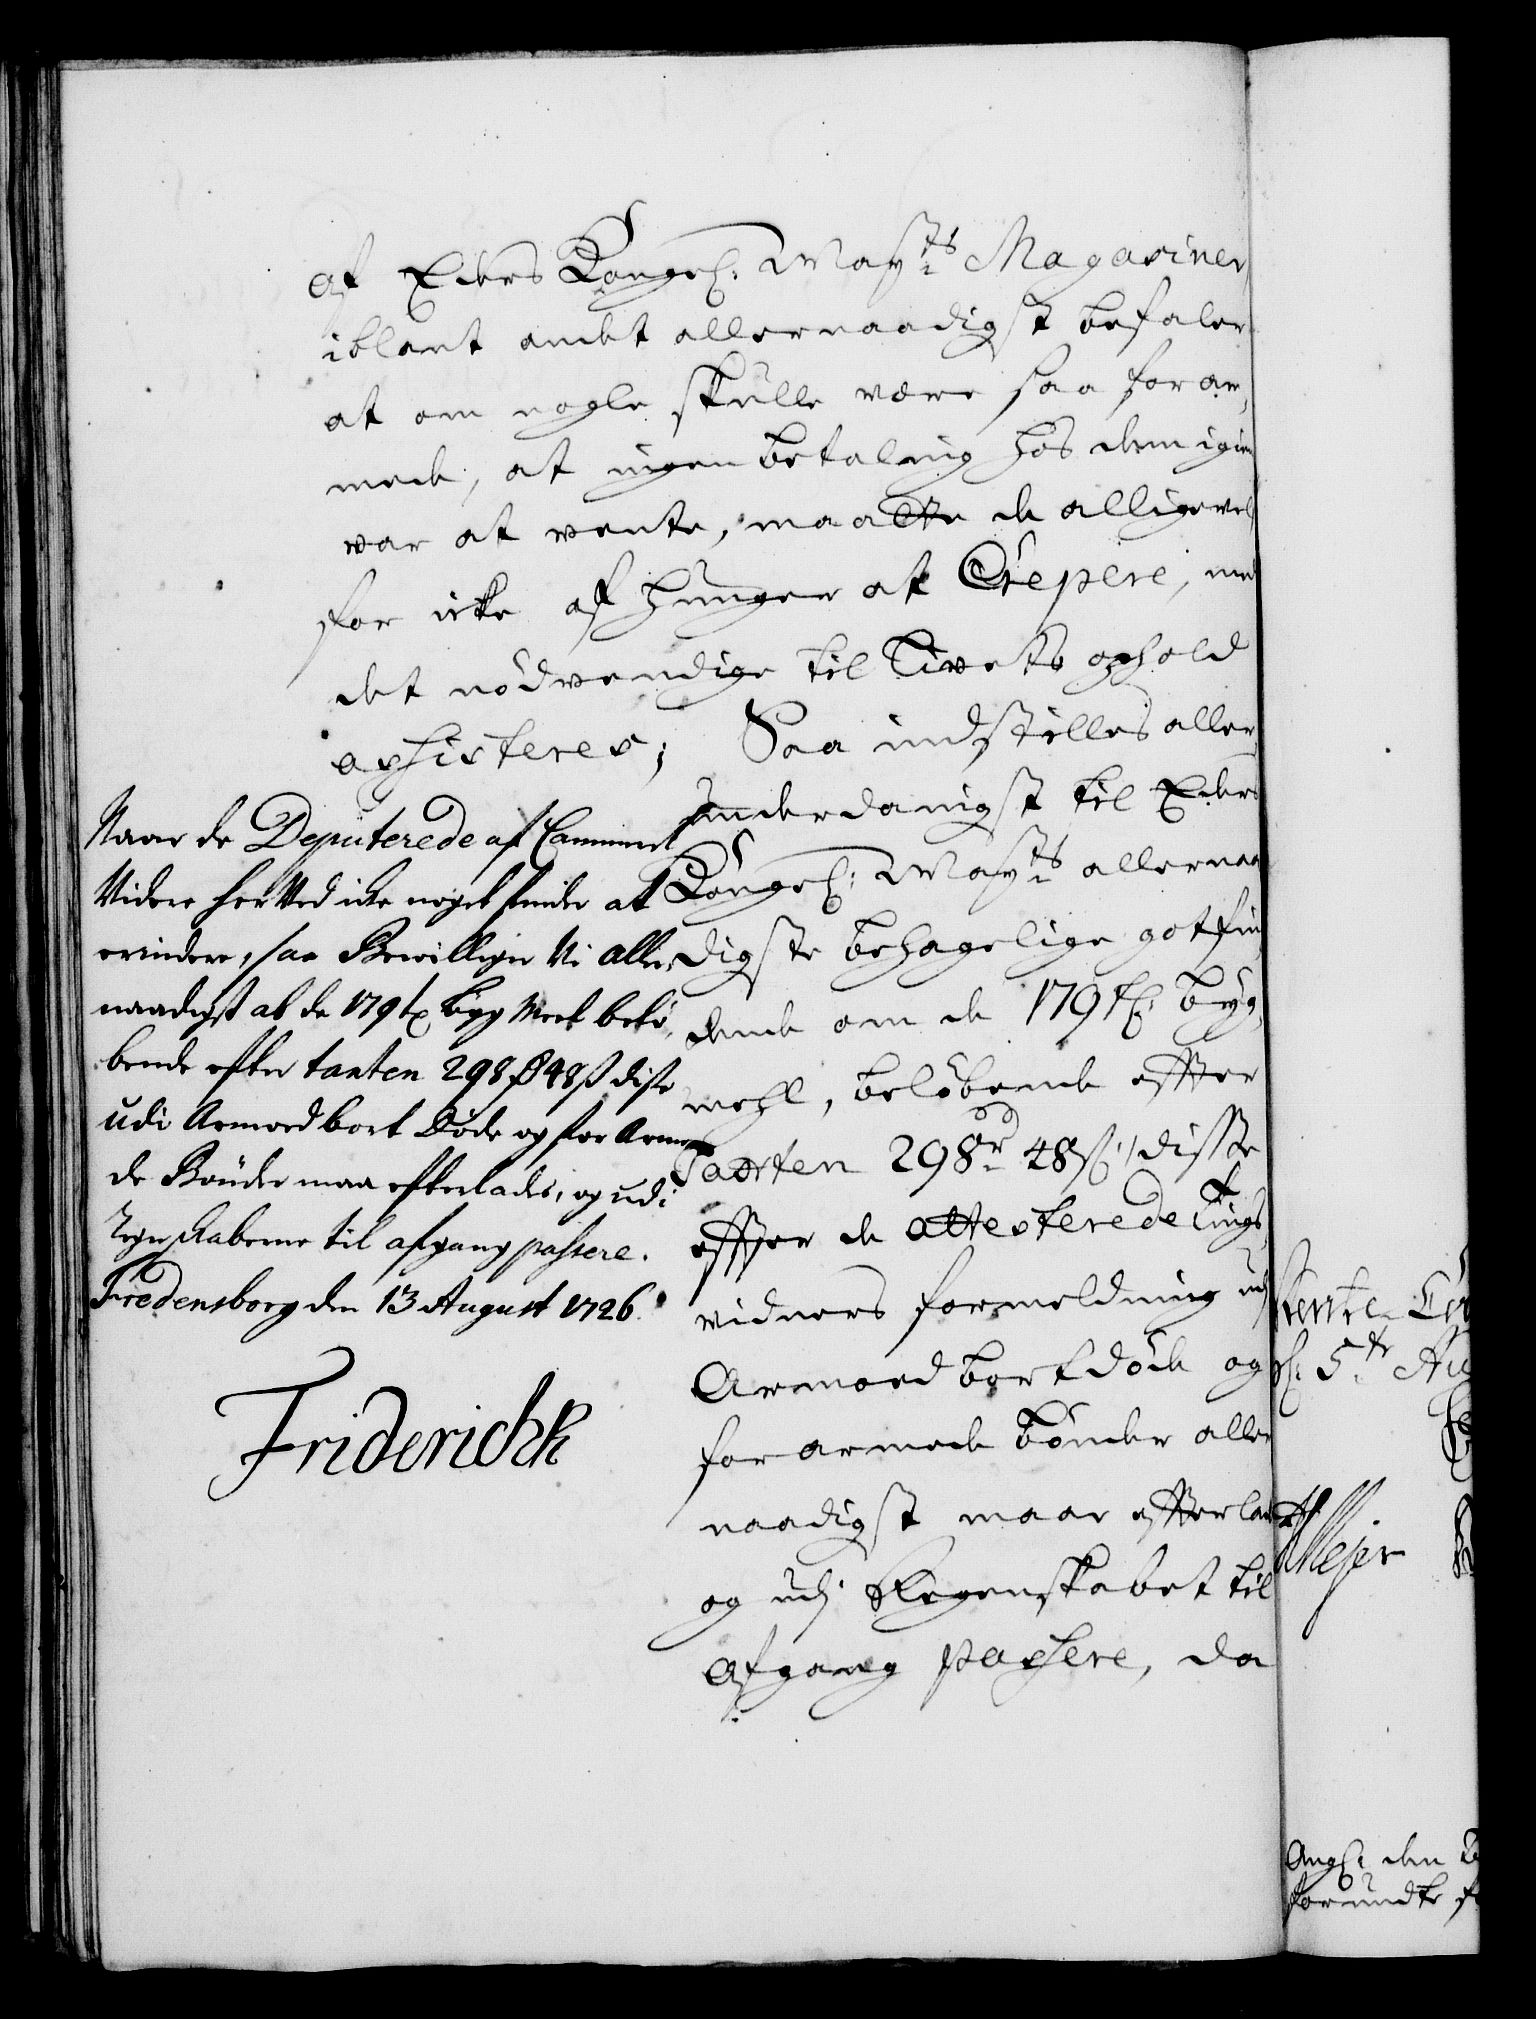 af Eders Kongel: May:ts Magaziner,
iblant andet allernaadigst befaler
at om nogle skulle være saa forar,
mede, at ingen betaling hos dem igien
var at vente, maatte de alligevel
for icke af hunger at Crepere, med
det nödvendige til Livets ophold
assisteres; Saa indstilles aller,
underdanigst til Eders
Kongel: May:ts allernaa
digste behagelige gotfin,
dende om de 179 tl: byg,
mehl, belöbende efter
Taxten 298 rd 48 ß, disse
efter de attesterede Tings,
vidners formeldning udj
Armoed bortdöde og
forarmede bönder aller
naadigst maae efterlades
og udj Regenskabet til
Afgang passere, da
Naar de Deputerede af Cammeret
Videre her Ved icke noget finder at
erindre, saa Bewilliger Vi aller,
naadigst at de 179 t byg Meel belö,
bende efter taxten 298 rd 48 ß disse
udi Armoed bort Döde og for Arme,
de Bönder maa efterlades, og udi
Regnskaberne til afgang passere.
Fredensborg den 13 August 1726.
FriderichR
5te Au
Angl: den